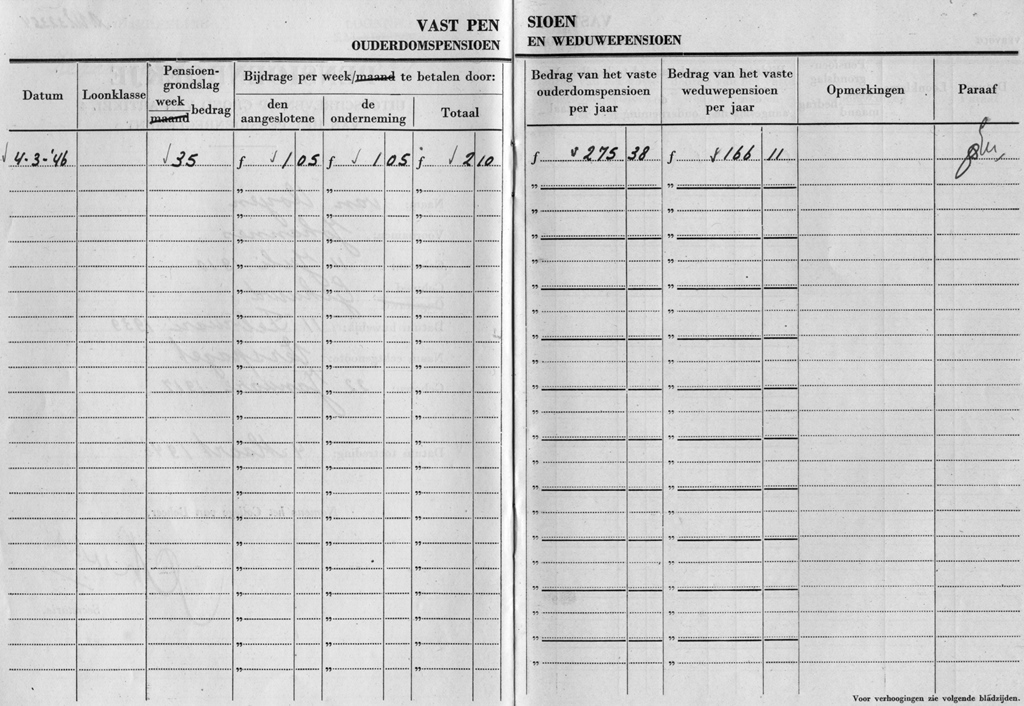 VAST PENSIOEN
OUDERDOMSPENSIOEN EN WEDUWEPENSIOEN
Datum
Loonklasse
Pensioen-
grondslag
week
maand bedrag
Bijdrage per week/maand te betalen door:
den
aangeslotene
de
onderneming
Totaal
Bedrag van het vaste
ouderdomspensioen
per jaar
Bedrag van het vaste
weduwepensioen
per jaar
Opmerkingen
Paraaf
4-3-'46 35 f 1 05 f 1 05 f 2 10 f 275 38 f 166 11
Voor verhoogingen zie volgende bladzijden.